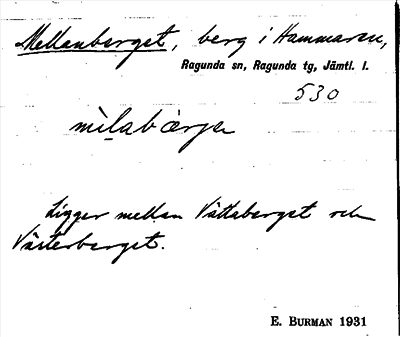 Mellanberget, berg i Hammaren,
Ragunda sn, Ragunda tg, Jämtl. l.
530
mìlabàrjæ
Ligger mellan Vättaberget och
Västerberget.
E. BURMAN 1931